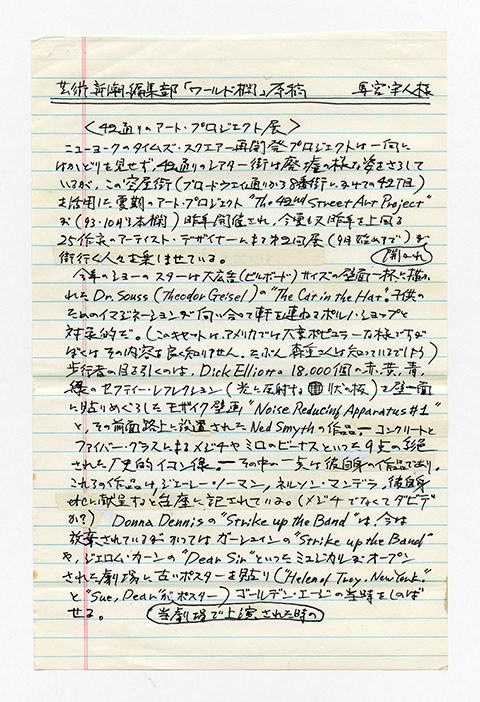 芸術新潮編集部「ワールド欄」原稿
〈42通りのアート・プロジェクト展〉
ニューヨークのタイムズ・スクエアー再開発プロジェクトは一向に
はかどりを見せず、42通りのシアター街は廃墟の様な姿をさらして
いるが、この空屋街(ブロードウエイ通りから8番街にかけての42丁目)
を活用した夏期のアート・プロジェクト "The 42nd Street Art Project"
が(93・10月号本欄)昨年開催され、今夏も又昨年を上回る
25作家のアーティスト・デザイナーによる第2回展(9月 まで)が
開かれ
街行く人々を楽しませている。
今年のショーのスターは大広告(ビルボード)サイズの壁面一杯に描か
れた Dr. Souss (Theodor Geisel) の "The Cat in the Hat". 子供の
ためのイマジネーションが向い合って軒を連ねるポルノ・ショップと
対象的だ。(このキャットはアメリカでは大変ポピュラーな様ですが
ぼくはその内容を良く知りません。たぶん 森 さんは知っているでしょう)
歩行者の目を引くのは、Dick Elliottの18,000個の赤、黄、青、
緑のセフティー・レフレクション(光に反射する 状の板)を壁一面
に貼りめぐらしたモザイク壁画 "Noise Reducing Apparatus #1"
と、その前面路上に設置されたNed Smythの作品ー コンクリートと
ファイバー・グラスによるメジチやミロのビーナスといった9点の彩色
された歴史的イコン像。ーその中の一点は彼自身の作品であり、
これらの作品は、ジェーシー・ノーマン、ネルソン・マンデラ、彼自身
etcに献呈すると台座に記されている。(メジチでなくてダビデ
か?) Donna Dennisの "Strike up the Band" は、今は
放棄されているがかつてはガーシュインの "Strike up the Band"
や、ジェロム・カーンの "Dear Sir" といったミュージカルがオープン
された劇場に古いポスターを貼り ("Helen of Troy, New York."
と "Sue, Dear" がポスター) ゴールデン・エージの当時をしのば
せる。 当劇場で上演された時の